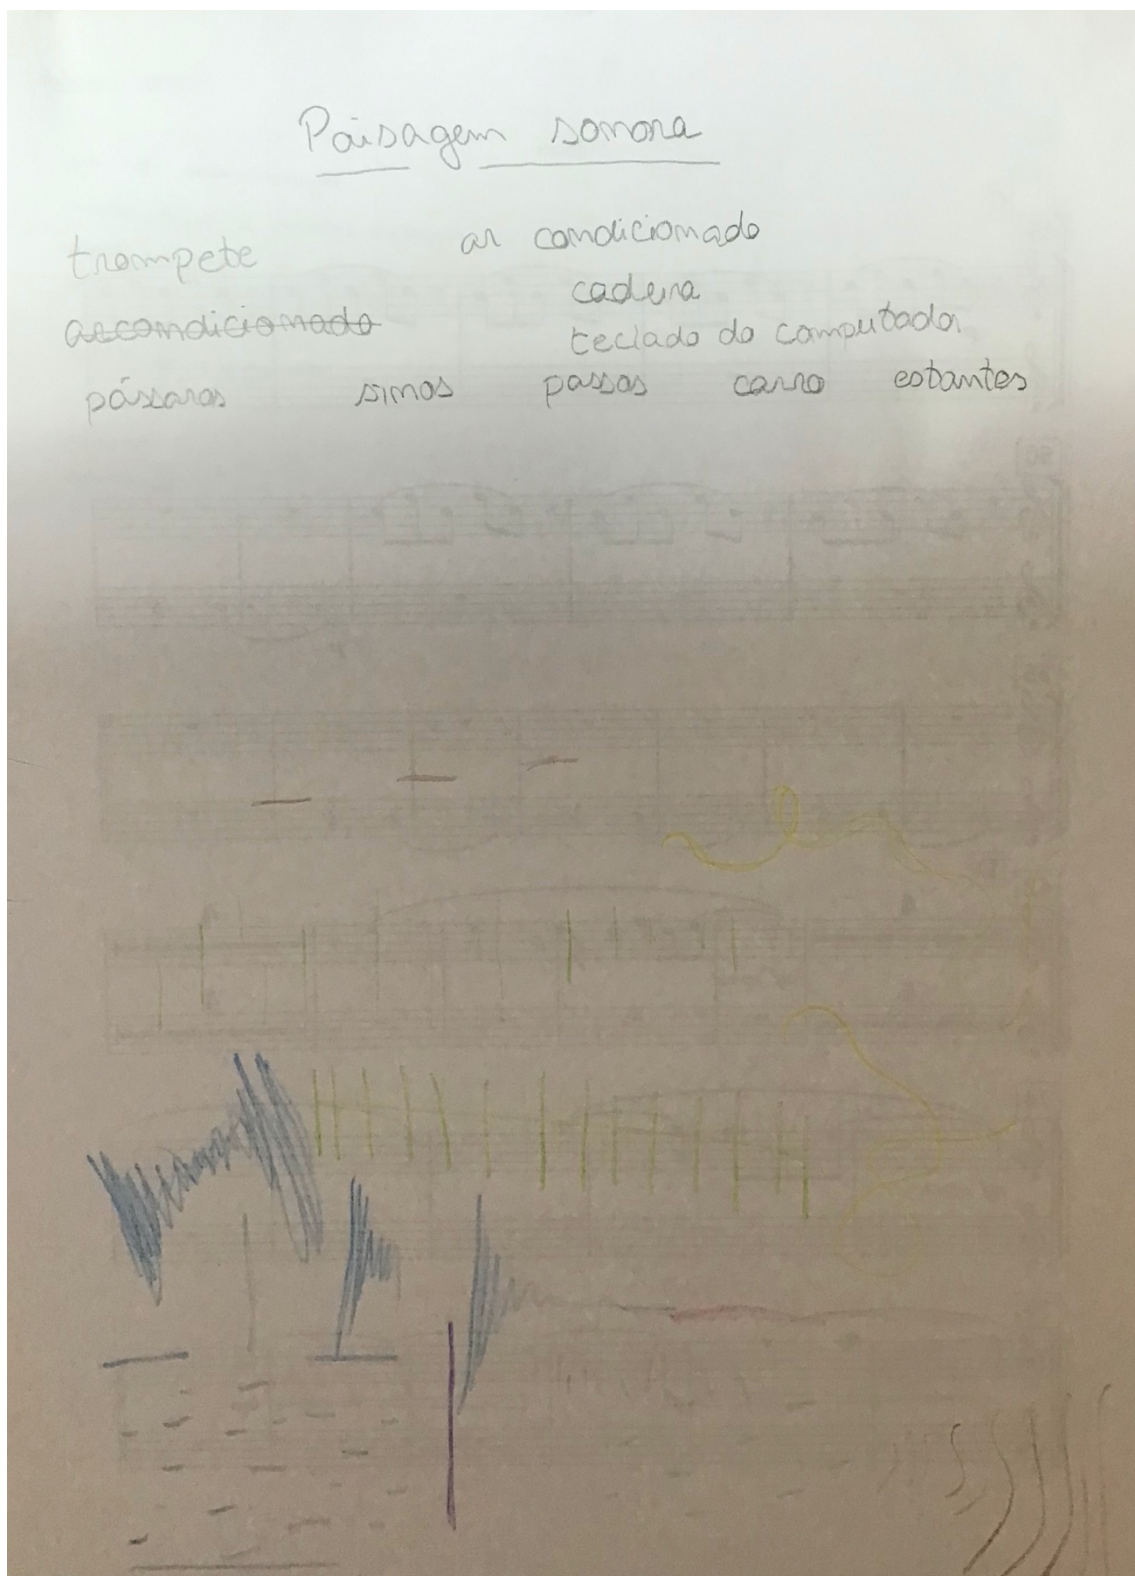 Paisagem sonora
trompete ar condicionado
cadeira
arcondicionado teclado do computador
pássaros sinos passos carro estantes